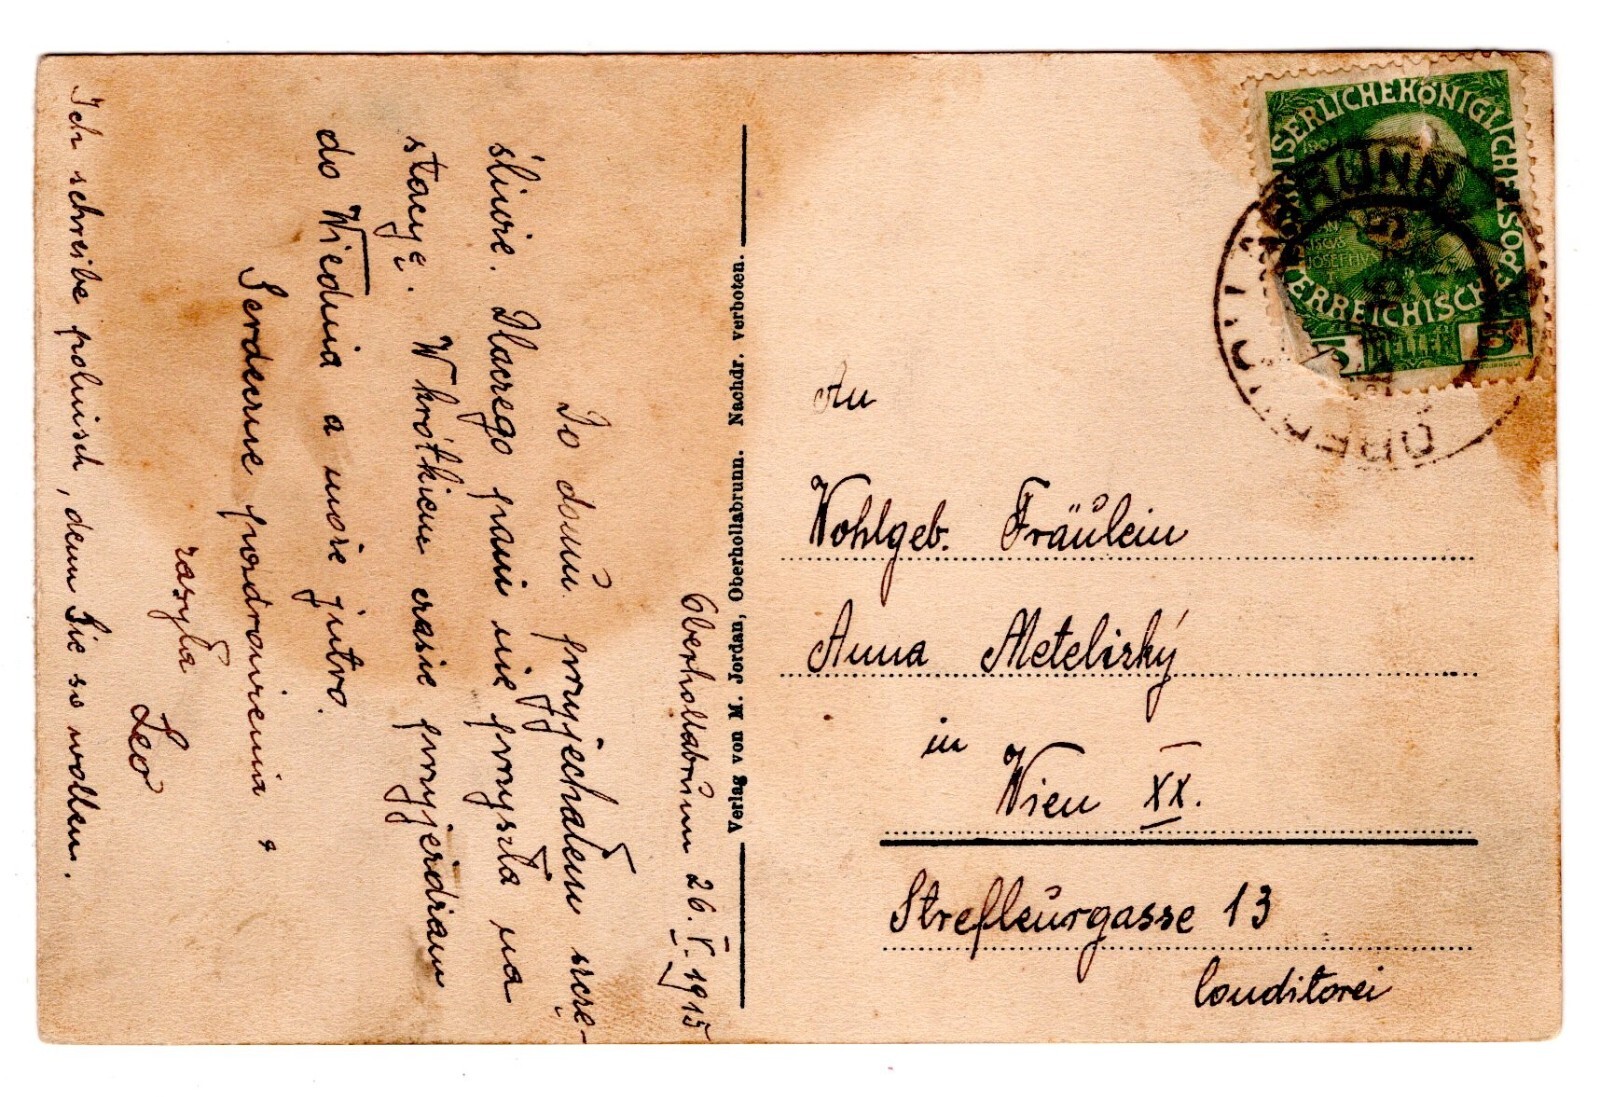 Oberhollabrunn 26. V. 1915
Do domu przyjechałem szczę-
śliwie. Dlaczego pani nie przyszła na
stacyę. W krótkiem czasie przyjezdzam
do Wiednia a moze jutro.
Serdeczne pozdrowienia
zasyła
Leo
Ich schreibe polnisch, denn Sie so wollen.
Verlag von M. Jordan, Oberhollabrunn. Nachdr. verboten.
KAISERLICHE KÖNIGLICHE
ÖSTERREICHISCHE POST
JOSEPHUS
5 HELLER 5
OBERHOLLABRUNN
An
Wohlgeb. Fräulein
Anna Metelizký
in
Wien XX.
Strefleurgasse 13
Conditorei